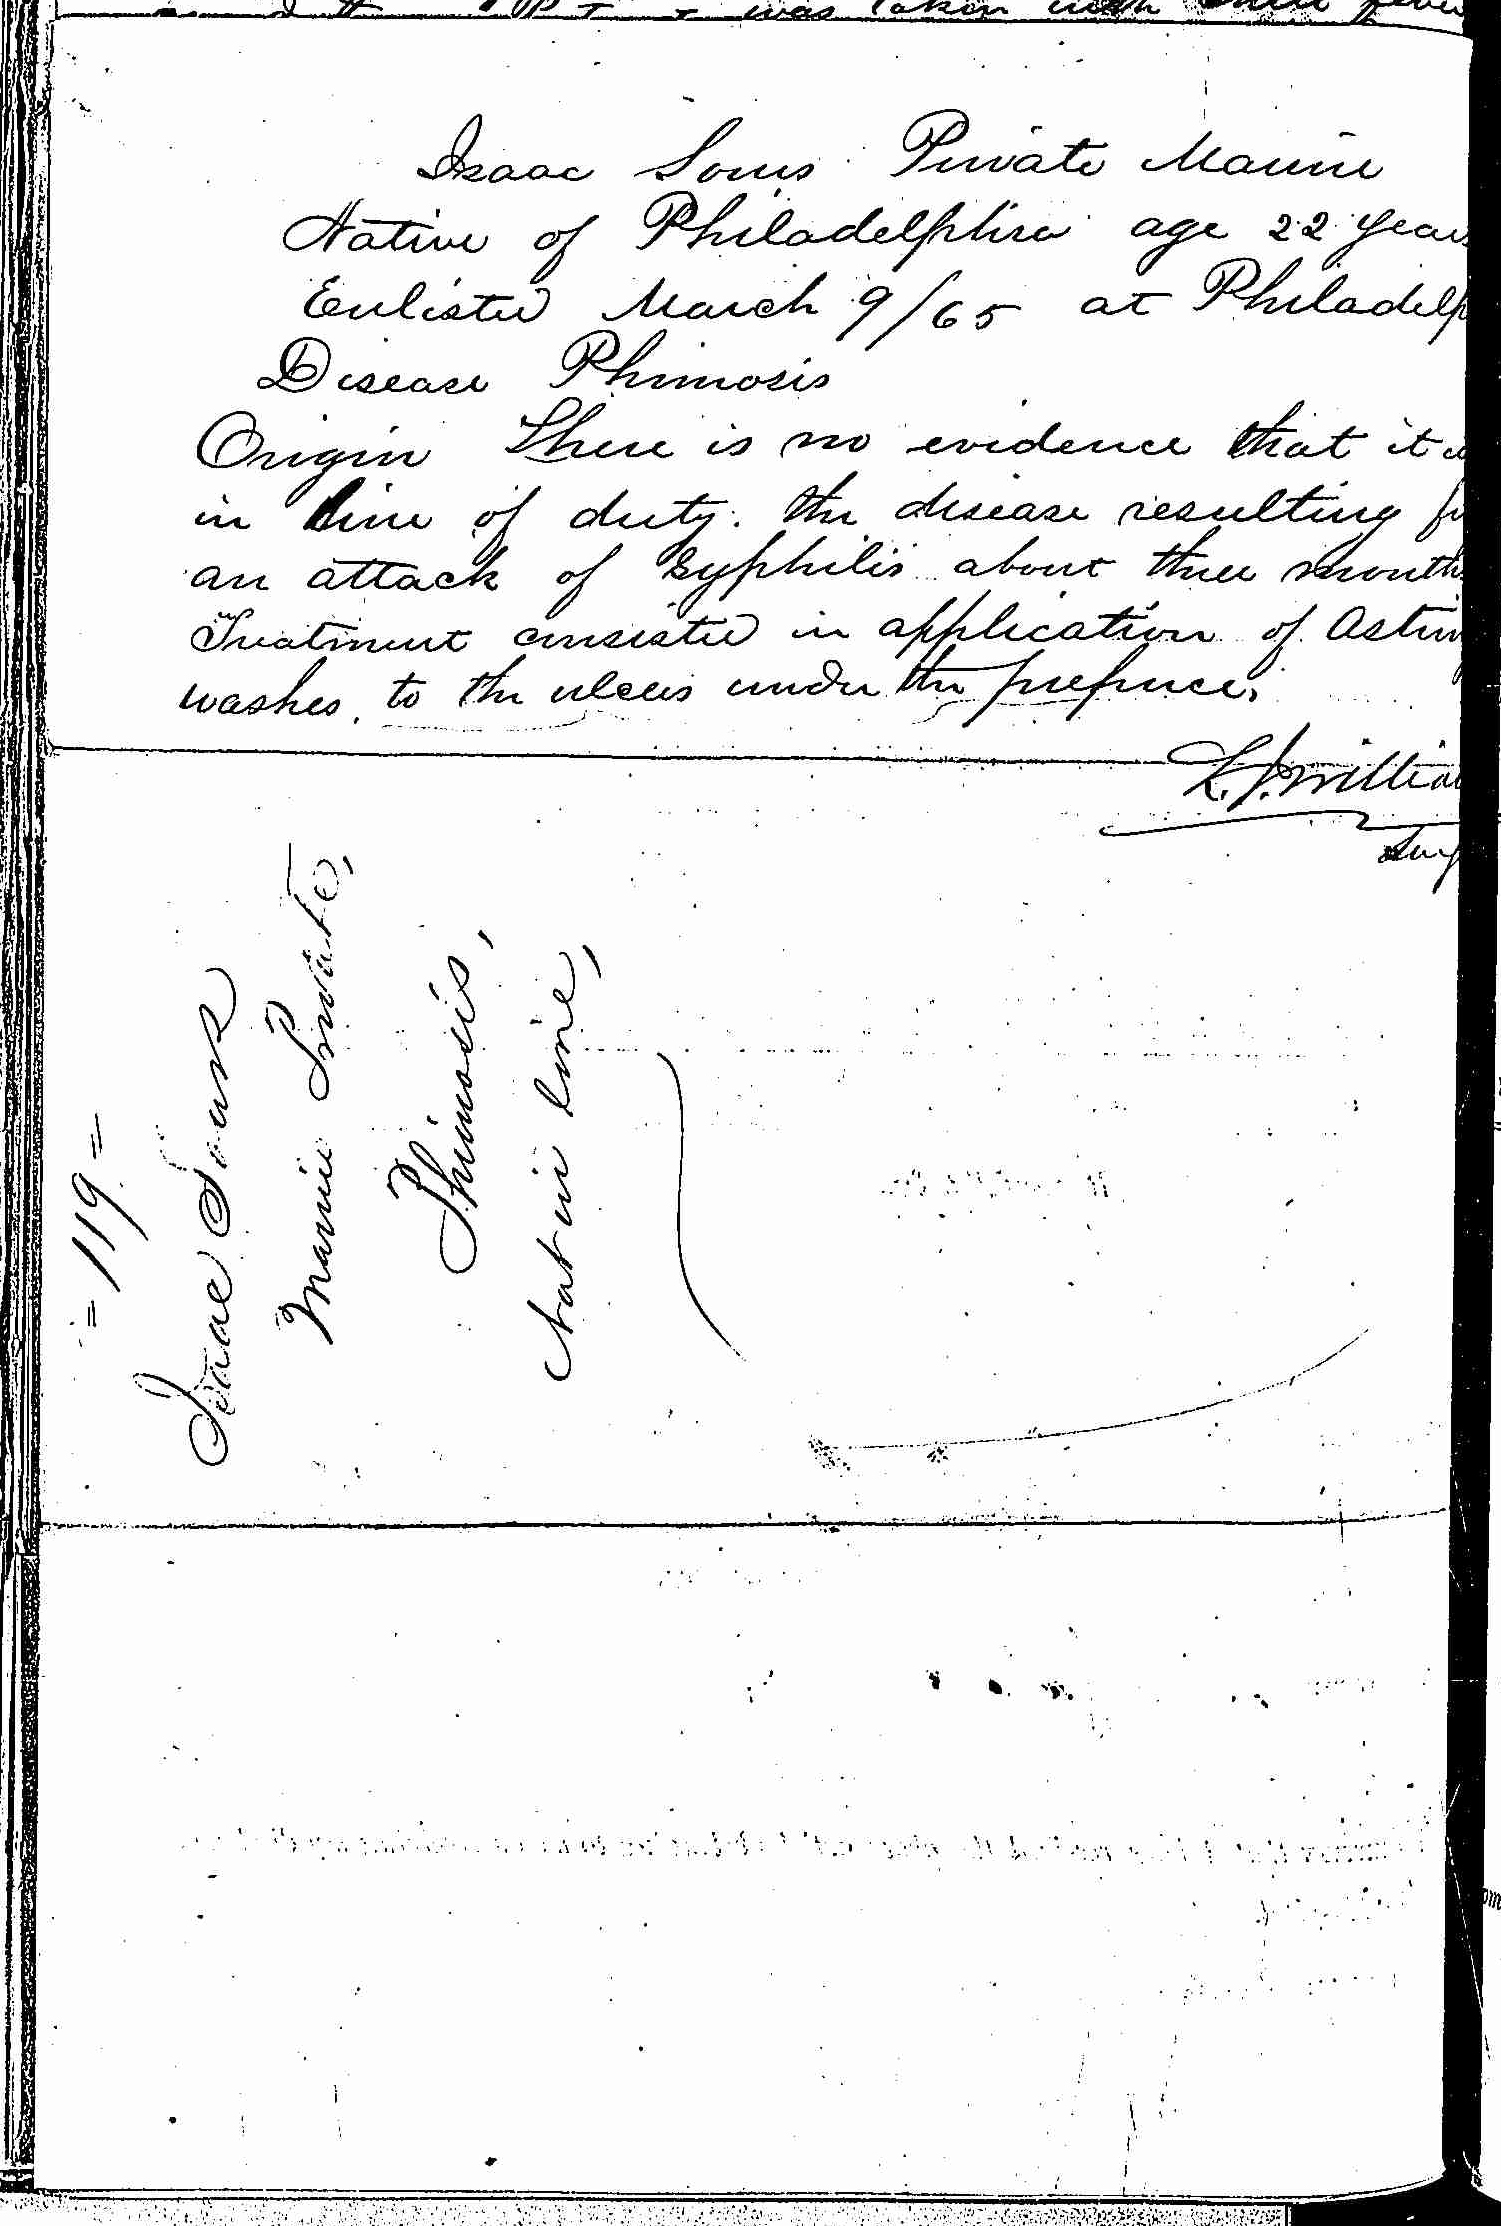 was taken with
Isaac Sours Private Marine
Native of Philadelphia age 22 years
Enlisted March 9/65 at Philadelp
Disease Phimosis
Origin There is no evidence that it
in line of duty. the disease resulting
an attack of Syphilis about three months
Treatment consisted in application of Astrin
washes, to the ulcers under the prepuce.
L. J. Willia
Surg
= 119 =
Isaac Sours
Marine Private,
Phimosis,
Not in line,